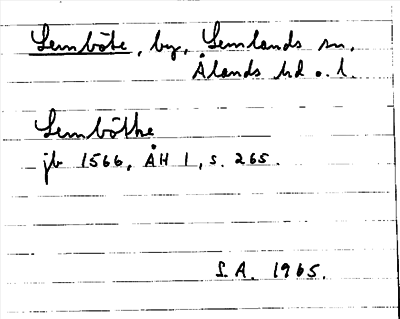 Lemböte, by, Lemlands sn,
Ålands hd o. l.
Lemböthe
jb 1566, ÅH 1, s. 265.
S.A. 1965.